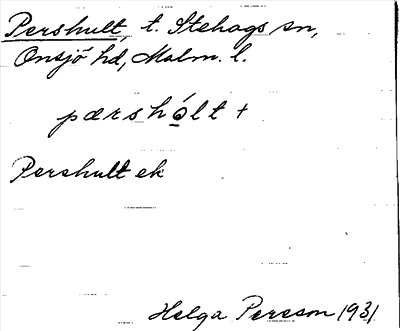 Pershult, t. Stehags sn,
Onsjö hd, Malm. l.
pærshó̲lt +
Pershult ek
Helga Persson 1931